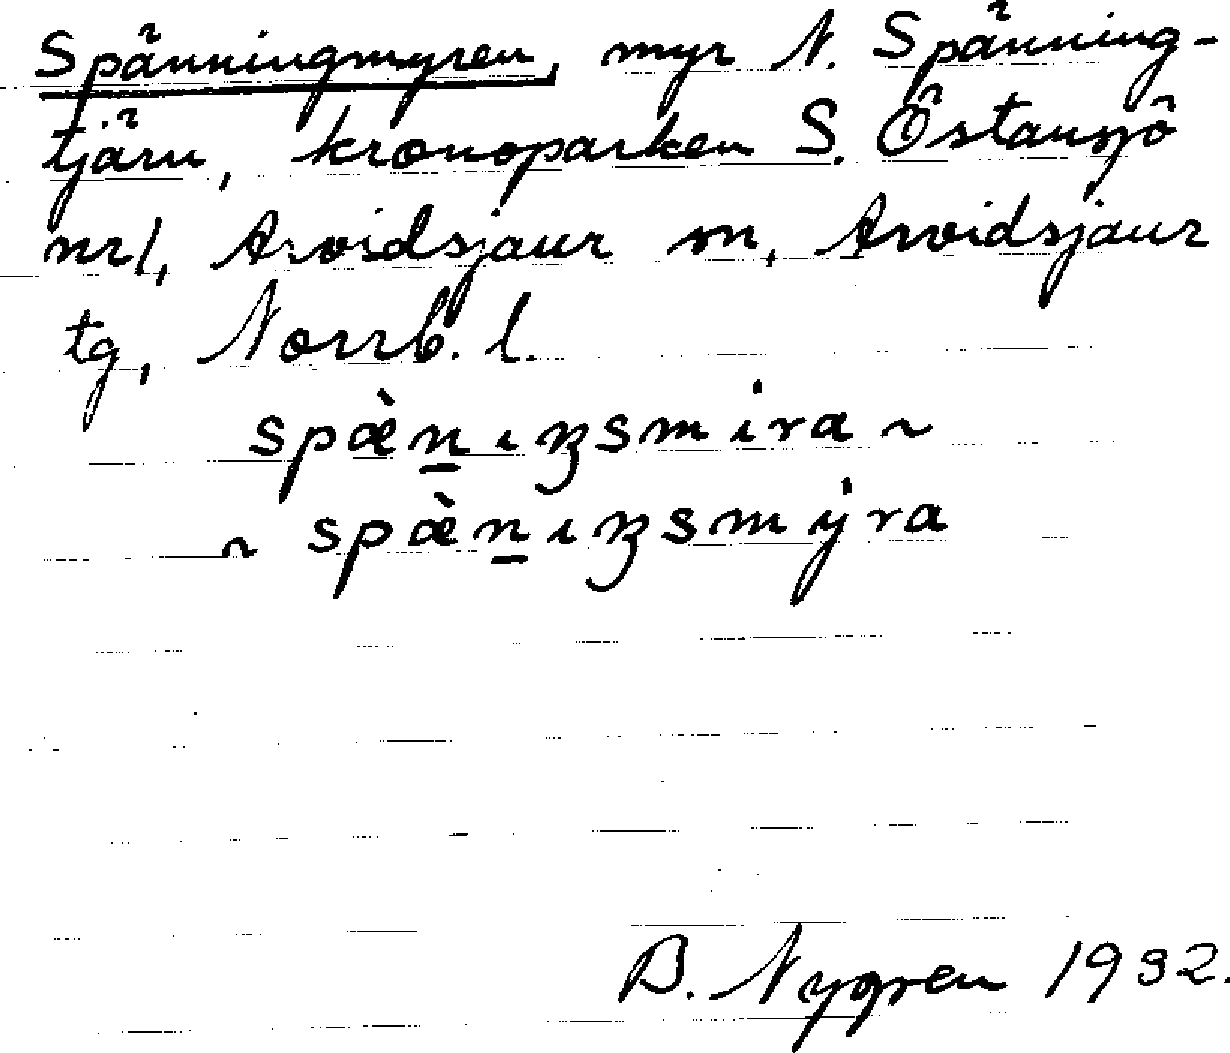 Spänningmyren, myr N. Spänning-
tjärn, kronoparken S. Östansjö
nr 1, Arvidsjaur sn, Arvidsjaur
tg, Norrb. l.
spæ̀n̲ıŋsmira ~
~ spæ̀n̲ıŋsmyra
B. Nygren 1932.